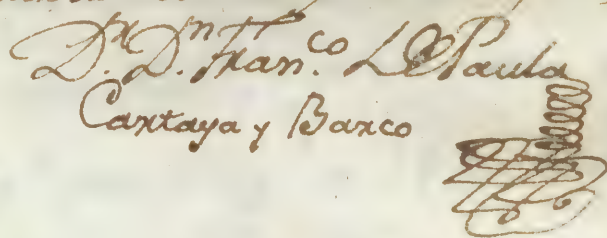 Dr. Dn. Franco. de Paula
Cartaya y Barco